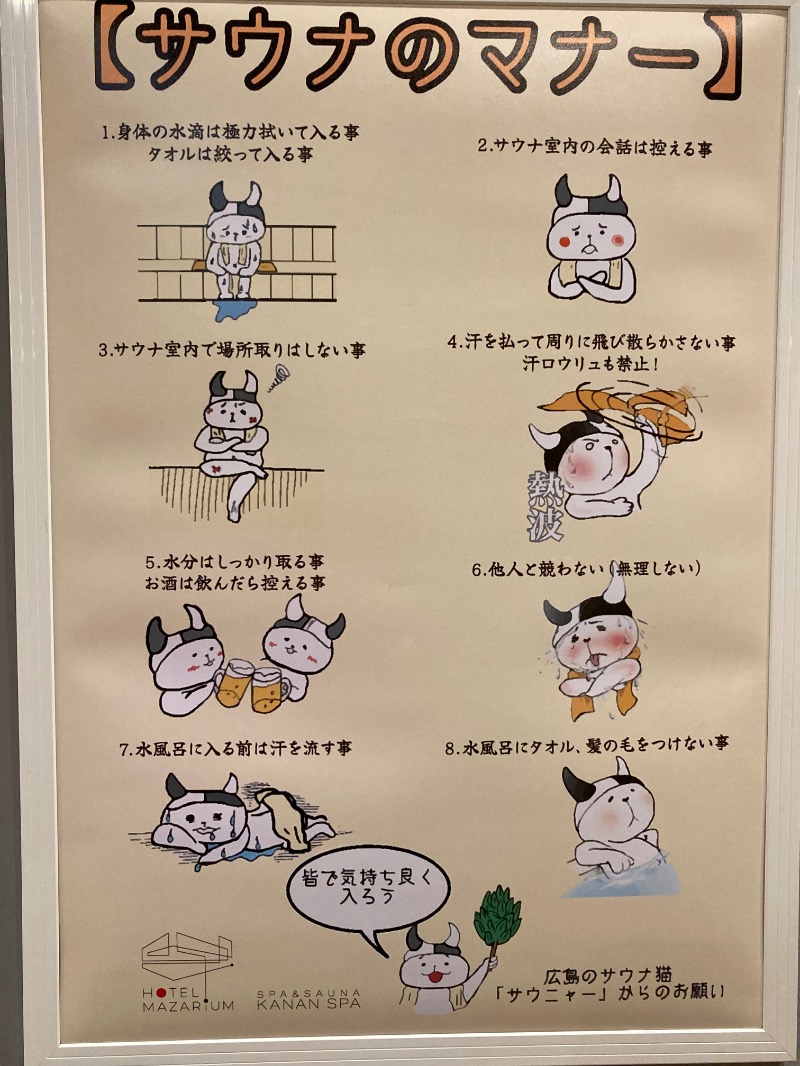 【サウナのマナー】
1.身体の水滴は極力拭いて入る事
タオルは絞って入る事
2.サウナ室内の会話は控える事
3.サウナ室内で場所取りはしない事
4.汗を払って周りに飛び散らかさない事
汗ロウリュも禁止!
熱波
5.水分はしっかり取る事
お酒は飲んだら控える事
6.他人と競わない(無理しない)
7.水風呂に入る前は汗を流す事
8.水風呂にタオル、髪の毛をつけない事
皆で気持ち良く
入ろう
HOTEL
MAZARIUM
SPA&SAUNA
KANAN SPA
広島のサウナ猫
「サウニャー」からのお願い